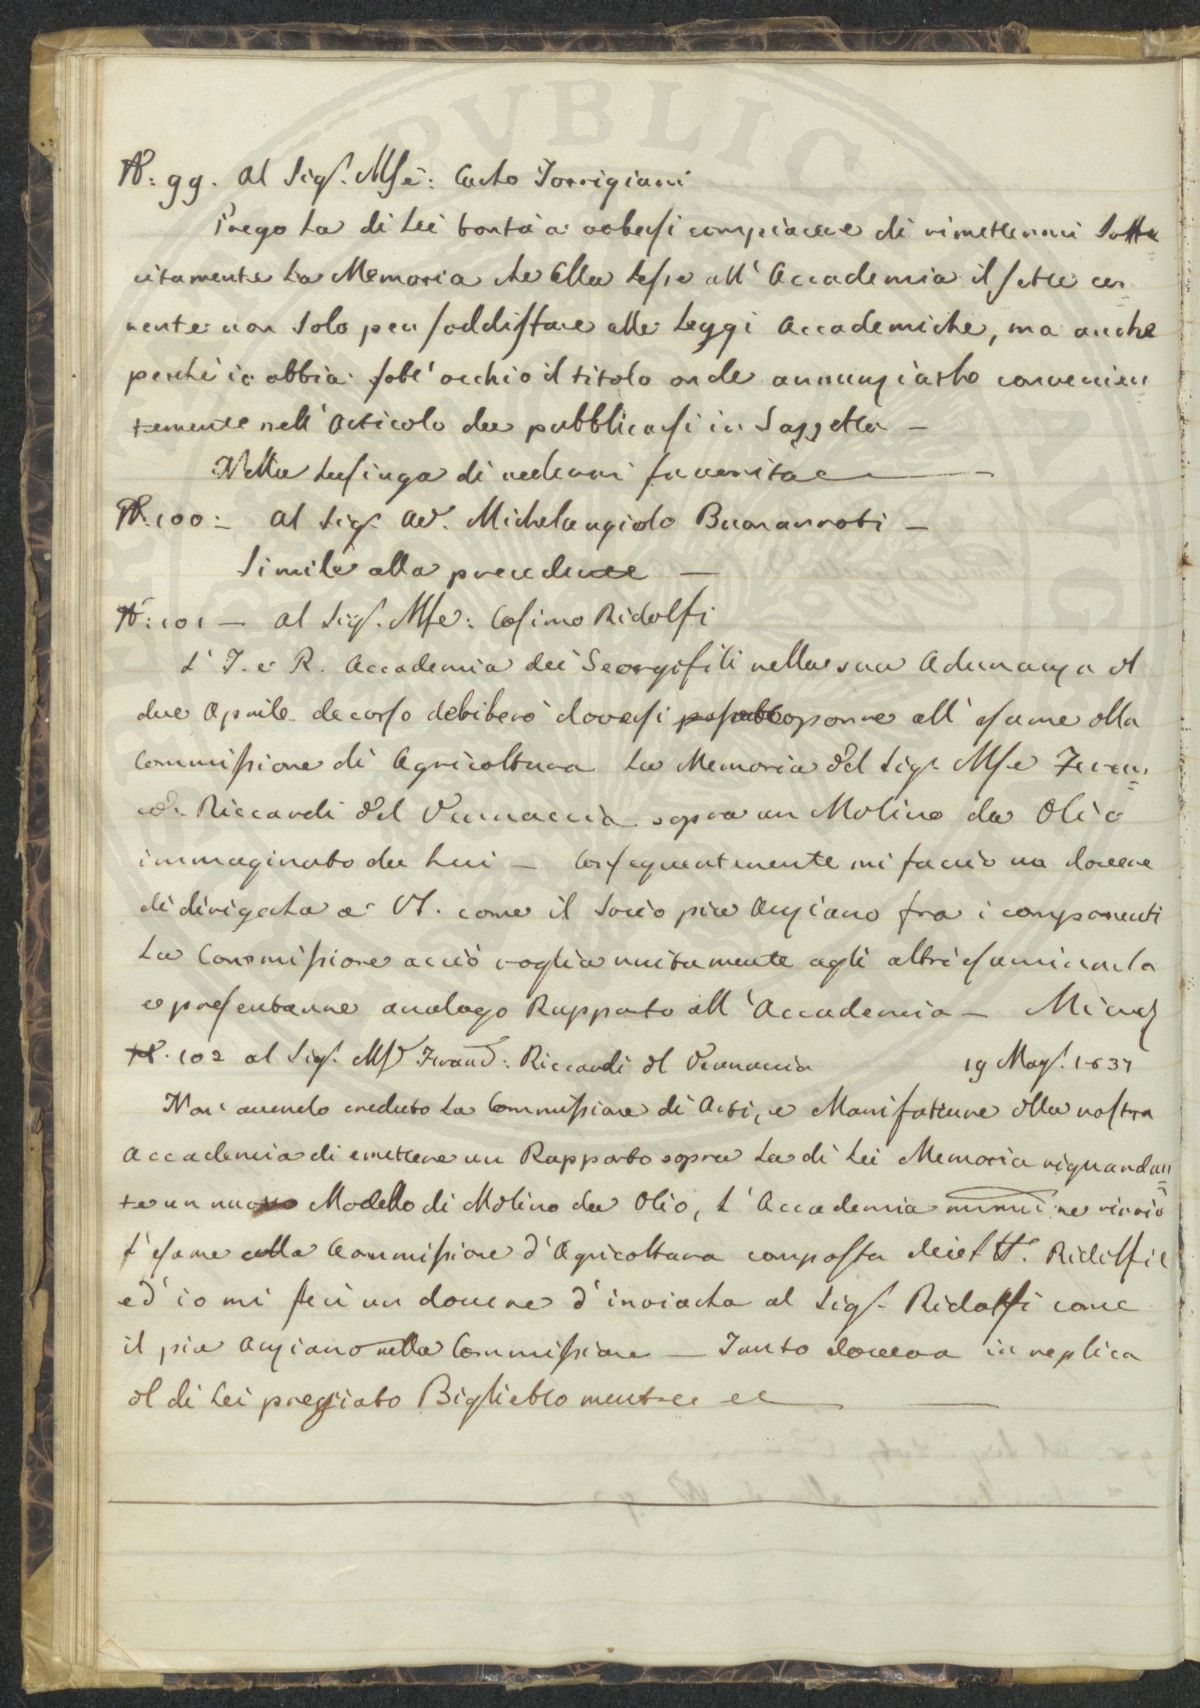 PVBLIC
N: 99. Al Sig.r Mse: Carlo Torrigiani
Prego la di Lei bontà a volersi compiacere di rimettermi solle
citamente la Memoria che Ella lesse all'Accademia il sette cor
rente non solo per soddisfare alle Leggi Accademiche, ma anche
perchè io abbia sott'occhio il titolo onde annunziarlo convenien
temente nell'Articolo da pubblicarsi in Gazzetta —
Nella lusinga di vedermi favorita e —
N: 100: — Al Sig.r Av. Michelangiolo Buonarroti —
Simile alla precedente —
N: 101 — Al Sig.r Mse: Cosimo Ridolfi
L'I. e R. Accademia dei Georgofili nella sua Adunanza del
due Aprile decorso deliberò doversi sottoporre all'esame della
Commissione di Agricoltura la Memoria del Sig.r Mse Fran=
co: Riccardi del Vernaccia sopra un Molino da Olio
immaginato da Lui — Conseguentemente mi faccio un dovere
di dirigerla a VS. come il Socio più Anziano fra i componenti
la Commissione acciò voglia unitamente agli altri esaminarla
e presentarne analogo Rapporto all'Accademia —
N. 102 al Sig.r Mse Franc: Riccardi del Vernaccia 19 Mag. 1837
Non avendo creduto la Commissione di Arti, e Manifatture della nostra
Accademia di emettere un Rapporto sopra la di Lei Memoria riguardan=
te un nuovo Modello di Molino da Olio, L'Accademia ne rinviò
l'esame alla Commissione d'Agricoltura composta dei SS. Ridolfi e
ed io mi feci un dovere d'inviarla al Sig.r Ridolfi come
il più Anziano nella Commissione — Tanto doveva in replica
al di Lei pregiato Biglietto mentre ec —